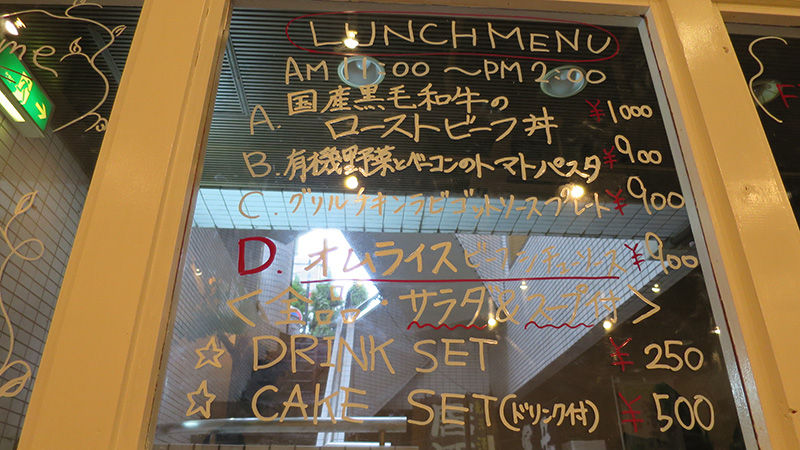 me
LUNCH MENU
AM 11:00 ～PM 2:00
A. 国産黒毛和牛の
ローストビーフ丼 ¥1000
B. 有機野菜とベーコンのトマトパスタ ¥900
C. グリルチキンラビゴットソースプレート ¥900
D. オムライスビーフシチューソース ¥900
<全品・サラダ&スープ付>
☆ DRINK SET ¥250
☆ CAKE SET(ドリンク付) ¥500
F